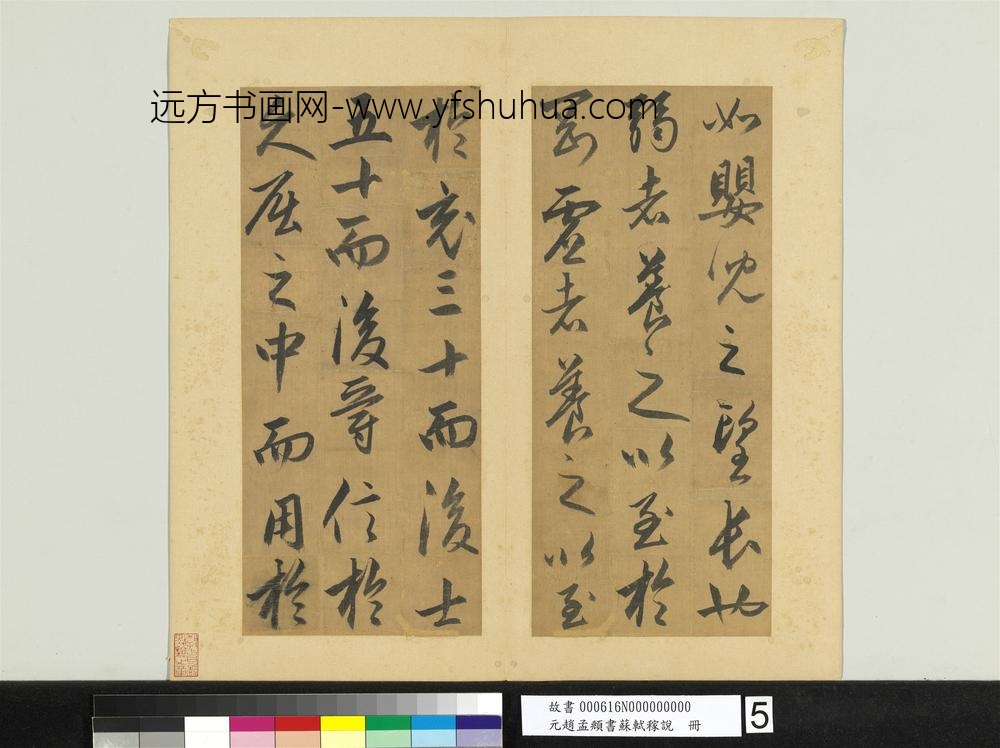 远方书画网-www.yfshuhua.com
如嬰兒之望長也
弱者養々之以至於
剛虛者養之以至
於充三十而後士
五十而後爵信於
久屈之中而用於
故書 000616N000000000
元趙孟頫書蘇軾稼說 冊
5